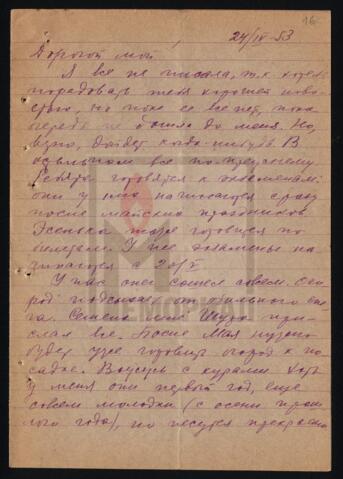 16
24/IV-53
Дорогой мой
Я все не писала, т.к. хотела
порадовать тебя хорошей ново-
стью, но пока ее все нет, пока
очередь не дошла до меня. Но,
верно, дойдет когда-нибудь. В
остальном все по-прежнему
Ребята готовятся к экзаменам:
они у них начинаются сразу
после майских праздников.
Эсенька тоже готовится по
билетам. У нее экзамены на-
чинаются с 20/V
У нас снег сошел совсем. Ого-
род подсыхает от сильного
Семена мне Шура при-
слал все. После Мая нужно
будет уже готовить огород к по-
садке. Вожусь с курами. Хоть
у меня они первый год, еще
совсем молодки (с осени прош-
лого года), но несутся прекрасно